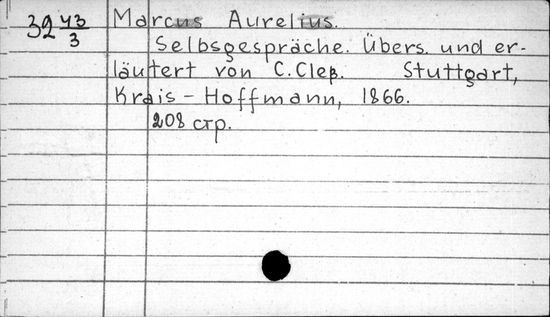 32 43/3
Marcus Aurelius.
Selbsgespräche. Übers. und er-
läutert von C. Cleß. Stuttgart,
Krais - Hoffmann, 1866.
208 стр.